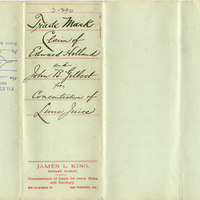 2-290
Trade Mark
Claim of
Edward Holland
and
John B Gilbert
for
Concentration of
Lime Juice
JAMES L. KING,
NOTARY PUBLIC,
Commissioner of Deeds for every State
and Territory.
FILED